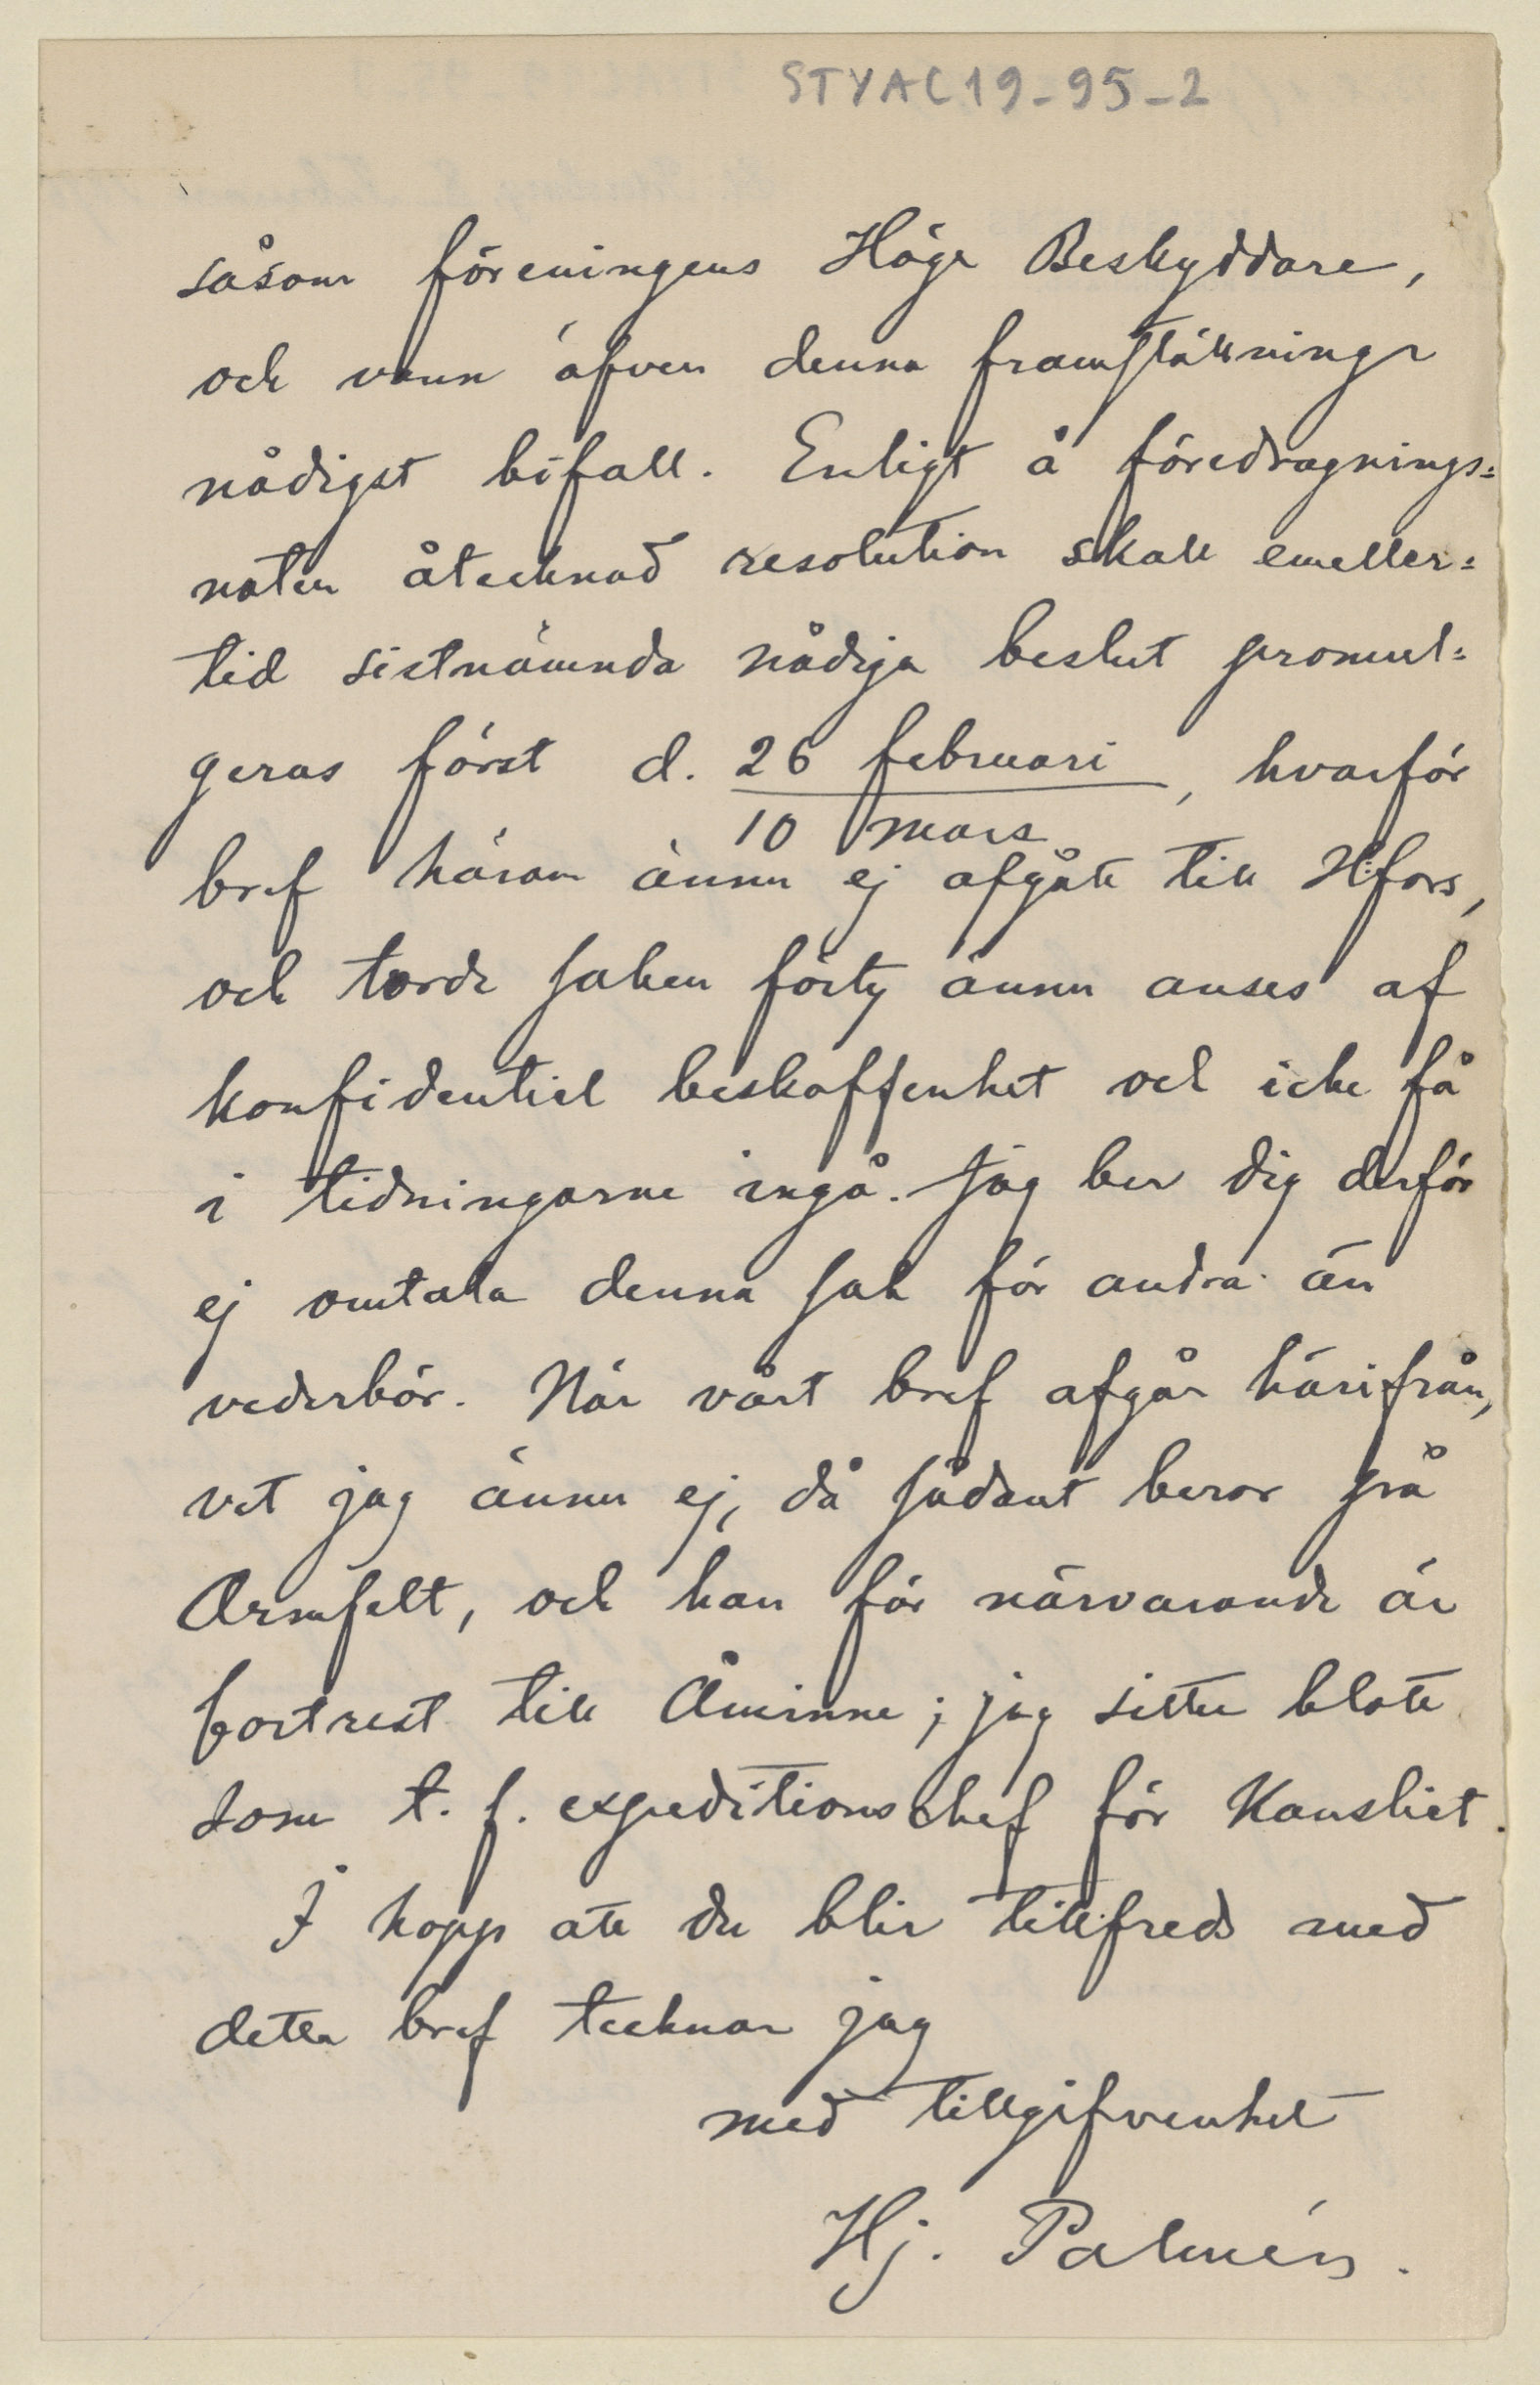 STYAC19-95-2
såsom föreningens Höge Beskyddare,
och vann äfven denna framställning
nådigst bifall. Enligt å föredragnings=
noten åtecknad resolution skall emeller=
tid sistnämnda nådiga beslut promul=
geras först d. 26 februari, hvarför
10 mars
bref härom ännu ej afgått till H:fors,
och torde saken förty ännu anses af
konfidentiel beskaffenhet och icke få
i tidningarne ingå. Jag ber dig derför
ej omtala denna sak för andra än
vederbör. När vårt bref afgår härifrån,
vet jag ännu ej, då sådant beror på
Armfelt, och han för närvarande är
bortrest till Åminne; jag sitter blott
som t. f. expeditionschef för Kansliet.
I hopp att du blir tillfreds med
detta bref tecknar jag
med tillgifvenhet
Hj. Palmén.